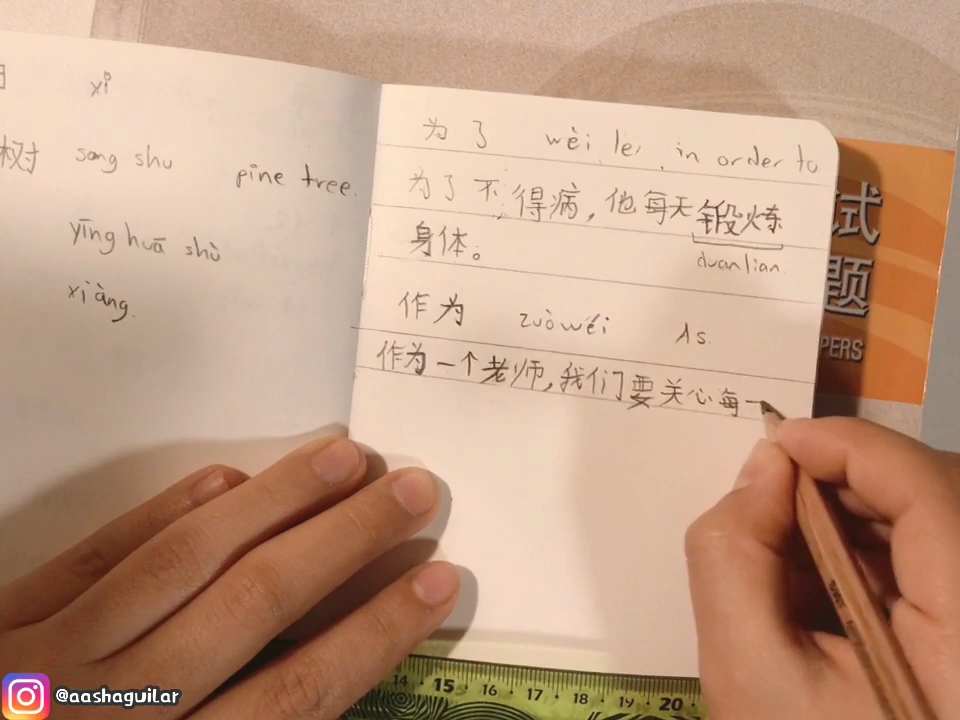 xǐ
树 song shu pine tree.
yīng huā shù
xiàng.
为了 wèi le, in order to
为了不得病，他每天锻炼
duanlian.
身体。
作为 zuòwéi As.
作为一个老师，我们要关心每一
试
题
PERS
14 15 16 17 18 19 20
@aashaguilar